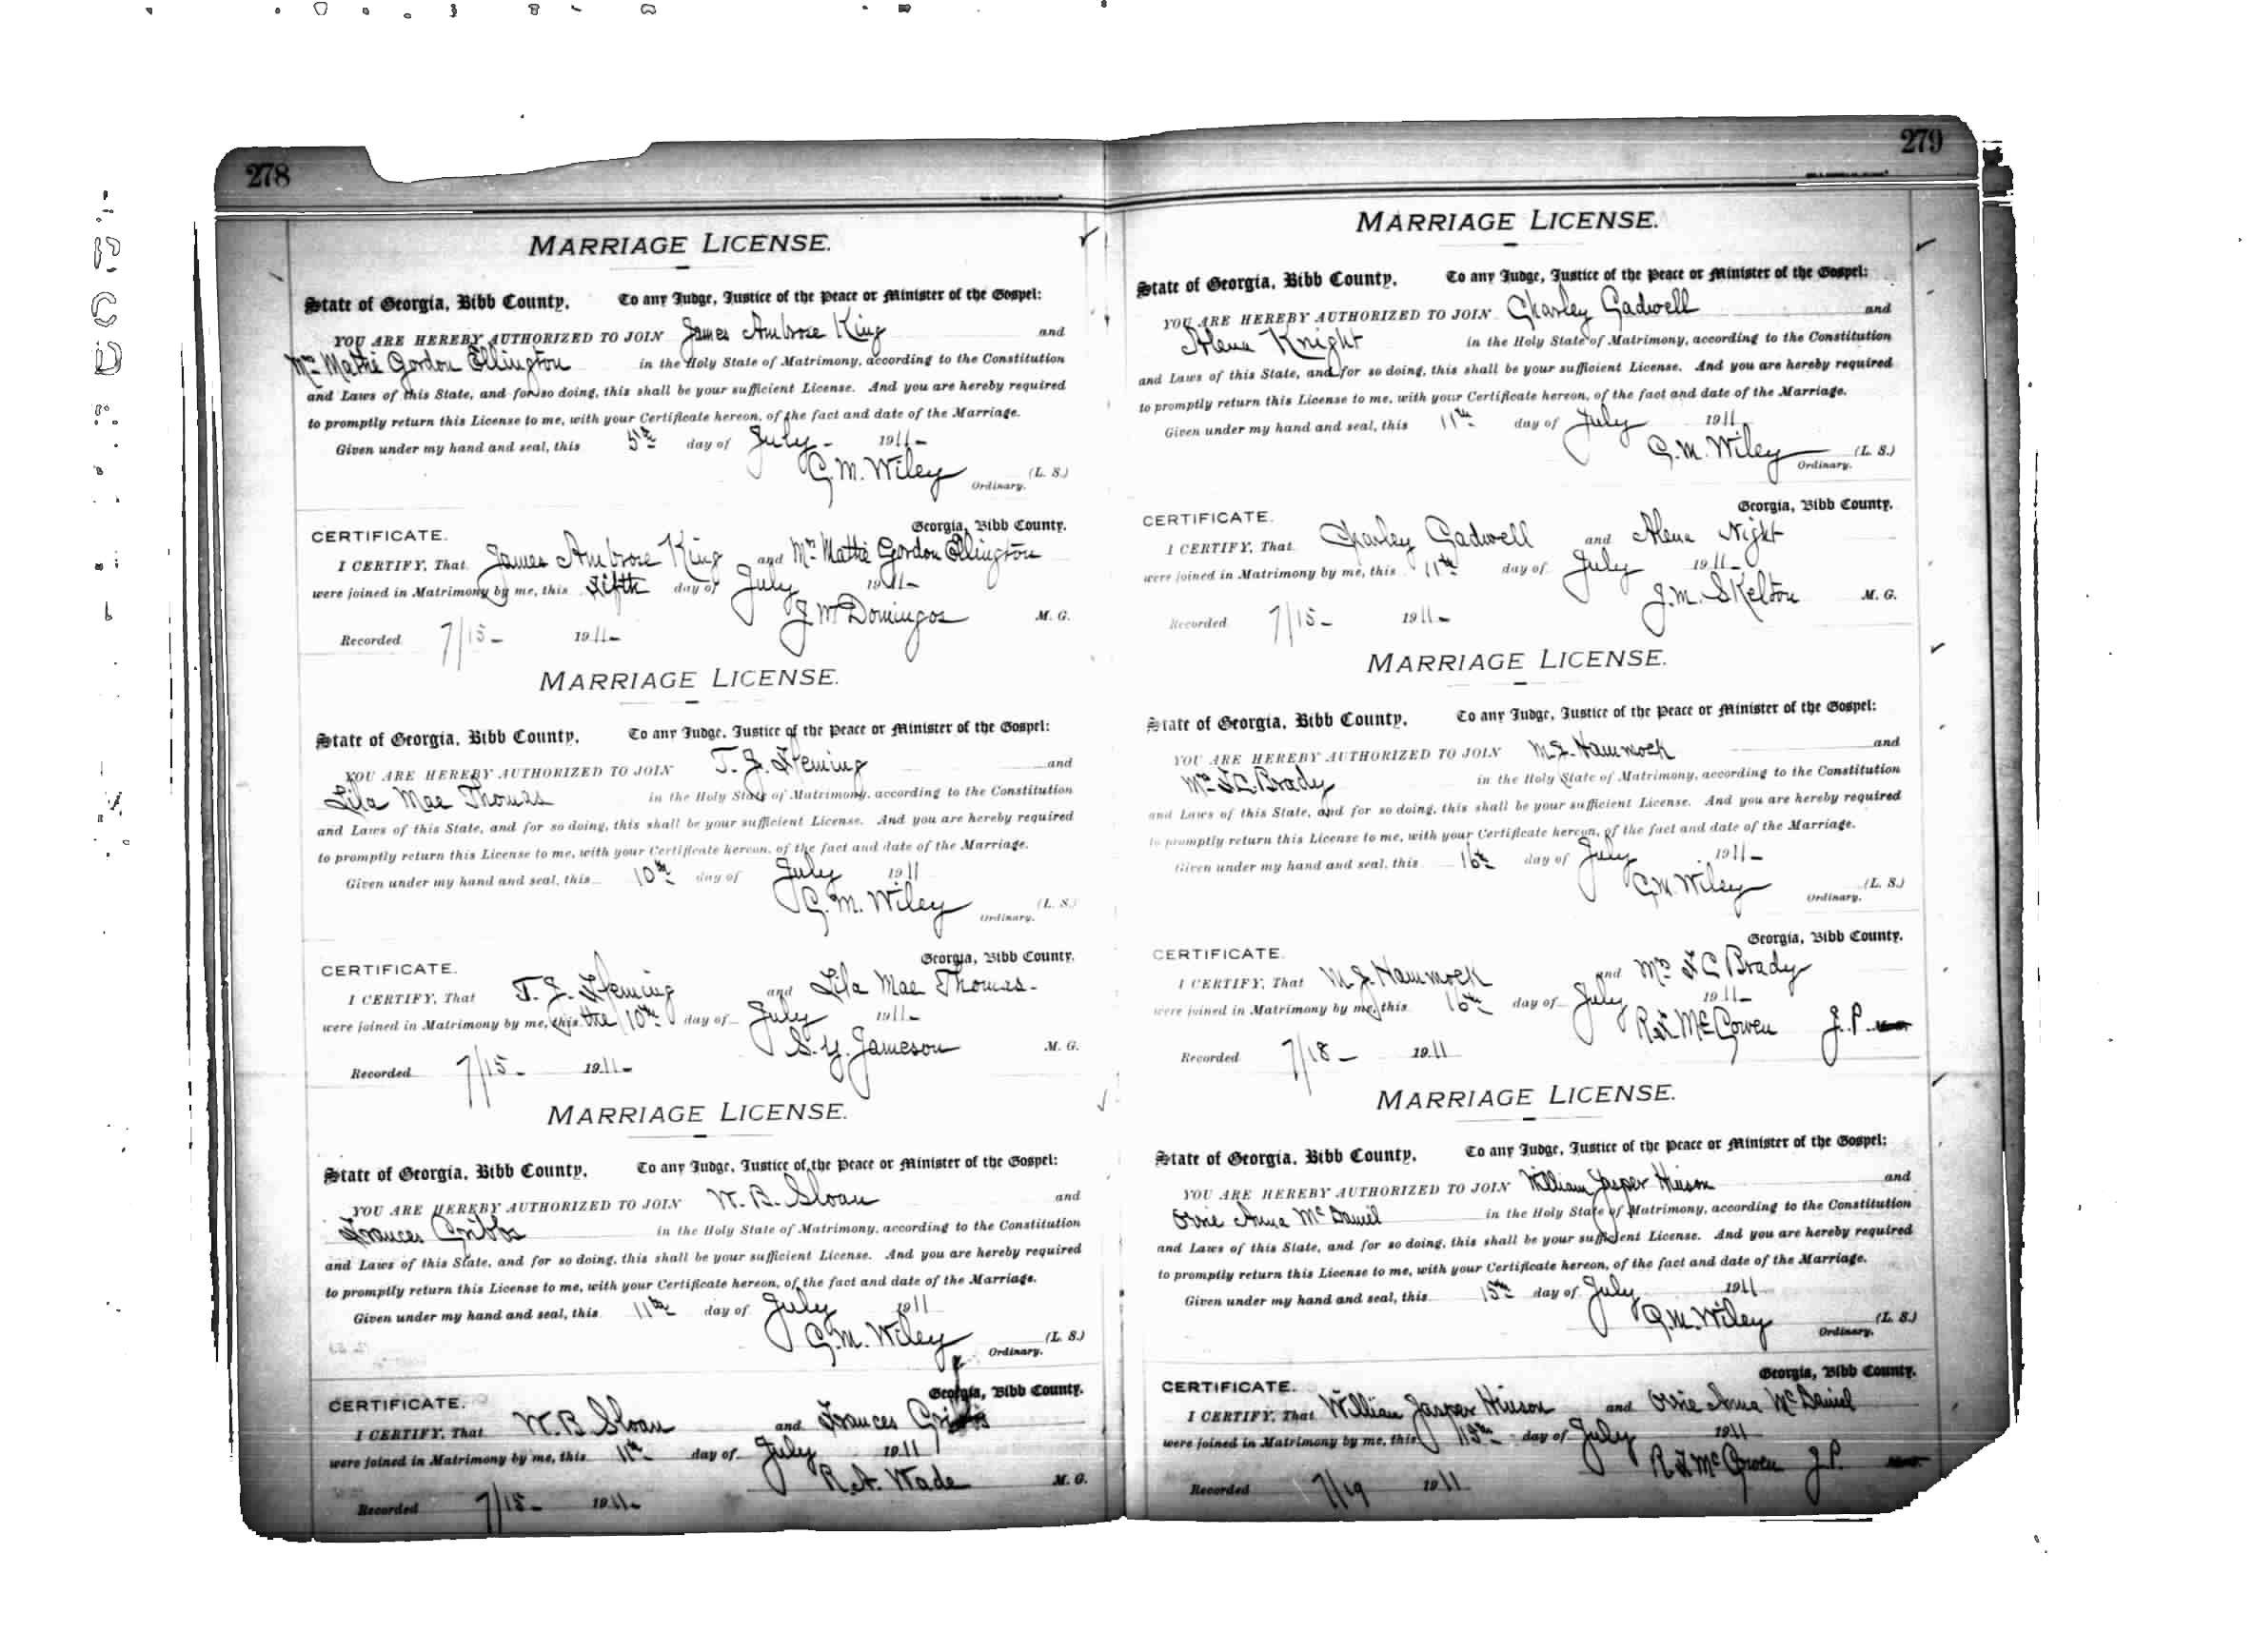 278
MARRIAGE LICENSE.
State of Georgia, Bibb County, To any Judge, Justice of the Peace or Minister of the Gospel:
YOU ARE HEREBY AUTHORIZED TO JOIN James Ambrose King and
Mrs Mattie Gordon Ellington in the Holy State of Matrimony, according to the Constitution
and Laws of this State, and for so doing, this shall be your sufficient License. And you are hereby required
to promptly return this License to me, with your Certificate hereon, of the fact and date of the Marriage.
Given under my hand and seal, this 5th day of July 1911
G. M. Wiley (L. S.)
Ordinary.
Georgia, Bibb County.
CERTIFICATE.
I CERTIFY, That James Ambrose King and Mrs Mattie Gordon Ellington
were joined in Matrimony by me, this fifth day of July 1911
J W Domingos M. G.
Recorded 7/15 1911
MARRIAGE LICENSE.
State of Georgia, Bibb County, To any Judge, Justice of the Peace or Minister of the Gospel:
YOU ARE HEREBY AUTHORIZED TO JOIN T. J. Fleming and
Lila Mae Thomas in the Holy State of Matrimony, according to the Constitution
and Laws of this State, and for so doing, this shall be your sufficient License. And you are hereby required
to promptly return this License to me, with your Certificate hereon, of the fact and date of the Marriage.
Given under my hand and seal, this 10th day of July 1911
G. M. Wiley (L. S.)
Ordinary.
Georgia, Bibb County.
CERTIFICATE.
I CERTIFY, That T. J. Fleming and Lila Mae Thomas
were joined in Matrimony by me, this the 10th day of July 1911
S. Y. Jameson M. G.
Recorded 7/15 1911
MARRIAGE LICENSE.
State of Georgia, Bibb County, To any Judge, Justice of the Peace or Minister of the Gospel:
YOU ARE HEREBY AUTHORIZED TO JOIN W. B. Sloan and
Frances Gribbs in the Holy State of Matrimony, according to the Constitution
and Laws of this State, and for so doing, this shall be your sufficient License. And you are hereby required
to promptly return this License to me, with your Certificate hereon, of the fact and date of the Marriage.
Given under my hand and seal, this 11th day of July 1911
G. M. Wiley (L. S.)
Ordinary.
Georgia, Bibb County.
CERTIFICATE.
I CERTIFY, That W. B Sloan and Frances
were joined in Matrimony by me, this 11th day of July 1911
R. A. Wade M. G.
Recorded 7/15 1911
279
MARRIAGE LICENSE.
State of Georgia, Bibb County, To any Judge, Justice of the Peace or Minister of the Gospel:
YOU ARE HEREBY AUTHORIZED TO JOIN Charley Gadwell and
Alena Knight in the Holy State of Matrimony, according to the Constitution
and Laws of this State, and for so doing, this shall be your sufficient License. And you are hereby required
to promptly return this License to me, with your Certificate hereon, of the fact and date of the Marriage.
Given under my hand and seal, this 11th day of July 1911
G. M. Wiley (L. S.)
Ordinary.
Georgia, Bibb County.
CERTIFICATE.
I CERTIFY, That Charley Gadwell and Alena Night
were joined in Matrimony by me, this 11th day of July 1911
J. M. Skelton M. G.
Recorded 7/15 1911
MARRIAGE LICENSE.
State of Georgia, Bibb County, To any Judge, Justice of the Peace or Minister of the Gospel:
YOU ARE HEREBY AUTHORIZED TO JOIN M. J. Hammock and
Mrs F C. Brady in the Holy State of Matrimony, according to the Constitution
and Laws of this State, and for so doing, this shall be your sufficient License. And you are hereby required
to promptly return this License to me, with your Certificate hereon, of the fact and date of the Marriage.
Given under my hand and seal, this 16th day of July 1911
G M Wiley (L. S.)
Ordinary.
Georgia, Bibb County.
CERTIFICATE.
I CERTIFY, That M. J. Hammock and Mrs F C Brady
were joined in Matrimony by me, this 16th day of July 1911
McGowen J. P.
Recorded 7/18 1911
MARRIAGE LICENSE.
State of Georgia, Bibb County, To any Judge, Justice of the Peace or Minister of the Gospel:
YOU ARE HEREBY AUTHORIZED TO JOIN William Jasper Hinson and
Ossie Anna McDaniel in the Holy State of Matrimony, according to the Constitution
and Laws of this State, and for so doing, this shall be your sufficient License. And you are hereby required
to promptly return this License to me, with your Certificate hereon, of the fact and date of the Marriage.
Given under my hand and seal, this 15th day of July 1911
G. M. Wiley (L. S.)
Ordinary.
Georgia, Bibb County.
CERTIFICATE.
I CERTIFY, That William Jasper Hinson and Ossie Anna McDaniel
were joined in Matrimony by me, this 15th day of July 1911
McGowen J. P.
Recorded 7/19 1911